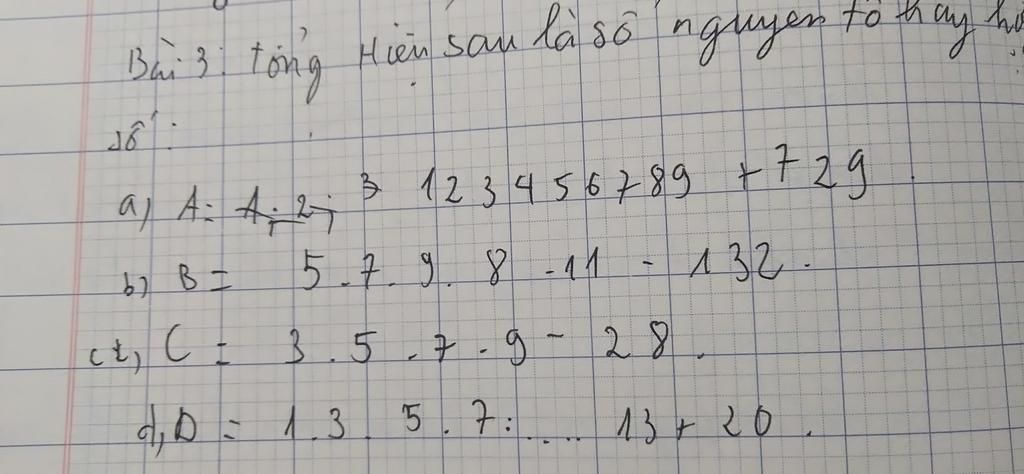 Bài 3: tổng Hiệu sau là số nguyên tố hay
số:
a) A = 123456789 + 729
b) B = 5.7.9.8.11 - 132.
c) C = 3.5.7.9 - 28.
d, D = 1.3.5.7. .... 13 + 20.